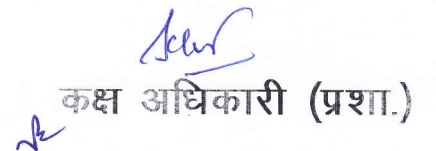 कक्ष अधिकारी (प्रशा.)